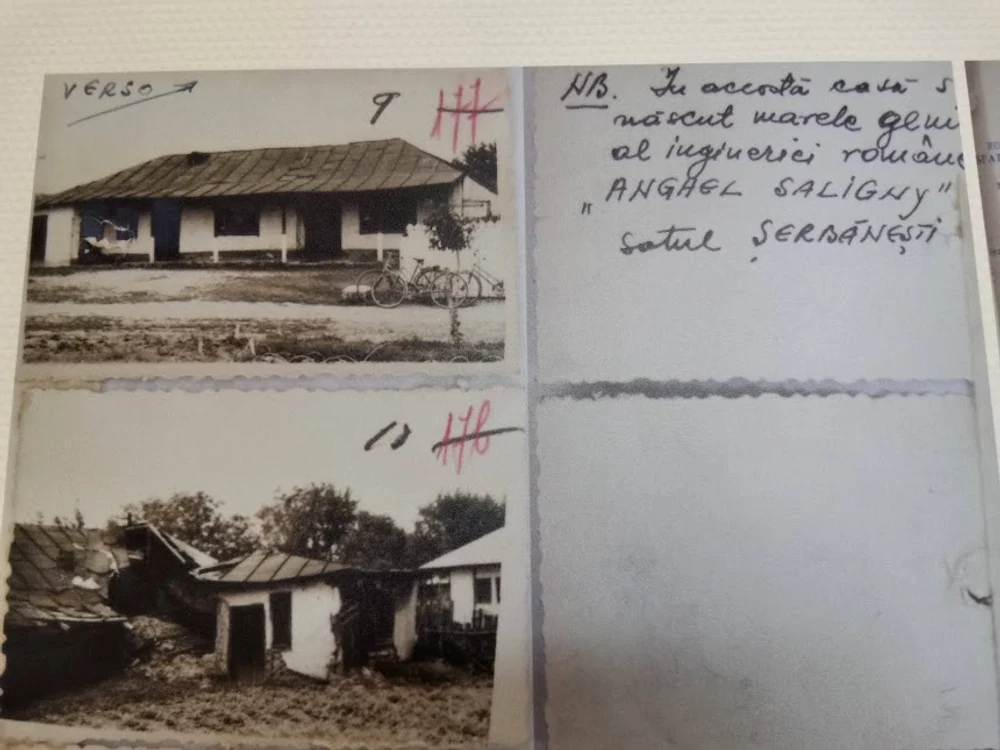 VERSO
9 177
NB. In această casă s
născut marele geni
al ingineriei române
"ANGAEL SALIGNY"
satul ŞERBĂNEŞTI
10 176